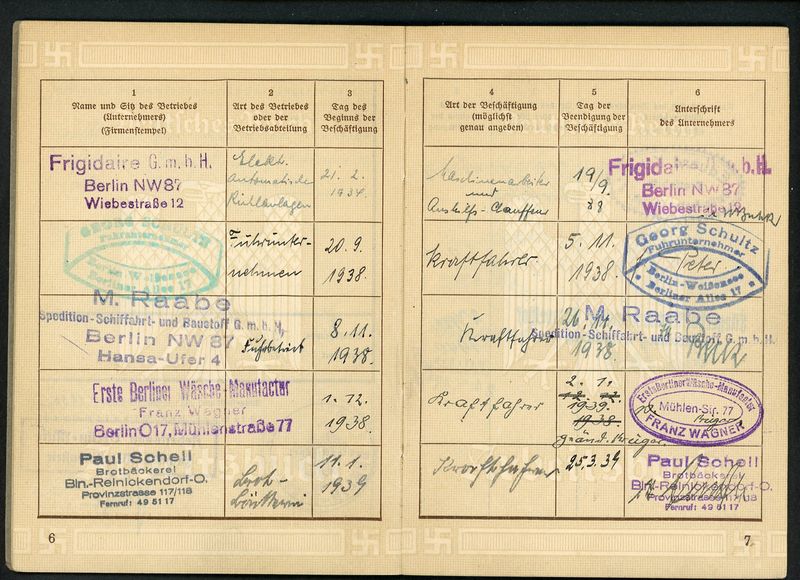 1
Name und Sitz des Betriebes
(Unternehmers)
(Firmenstempel)
2
Art des Betriebes
oder der
Betriebsabteilung
3
Tag des
Beginns der
Beschäftigung
Frigidaire G.m.b.H.
Berlin NW87
Wiebestraße 12
Elektr.
Automatische
Kühlanlagen
21. 2.
1934.
GEORG SCHULTZ
Fuhrunternehmer
Berlin-Weißensee
Berliner Allee 17
Fuhrunter-
nehmen
20.9.
1938.
M. Raabe
Spedition-Schiffahrt- und Baustoff G.m.b.H.
Berlin NW87
Hansa-Ufer 4
Fuhrbetrieb
8.11.
1938.
Erste Berliner Wäsche-Manufactur
Franz Wagner
Berlin O17, Mühlenstraße 77
1. 12.
1938.
Paul Schell
Brotbäckerei
Bln.-Reinickendorf-O.
Provinzstrasse 117/118
Fernruf: 49 51 17
Brot-
Bäckerei
11.1.
1939
6
4
Art der Beschäftigung
(möglichst
genau angeben)
5
Tag der
Beendigung der
Beschäftigung
6
Unterschrift
des Unternehmers
Maschinenarbeiter
und
Aushilfs-Chauffeur
19/9.
38
Frigidaire G.m.b.H.
Berlin NW87
Wiebestraße 12
Kraftfahrer
5. 11.
1938.
Georg Schultz
Fuhrunternehmer
Peter
Berlin-Weißensee
Berliner Allee 17
Kraftfahrer
26. 11.
1938.
M. Raabe
Spedition-Schiffahrt- und Baustoff G.m.b.H.
Kraftfahrer
2. 1.
12. 12.
1939.
1938.
geänd. Krüger
Erste Berliner Wäsche-Manufactur
Mühlen-Str. 77
Krüger
FRANZ WAGNER
Kraftfahrer
25.3.39
Paul Schell
Brotbäckerei
Bln.-Reinickendorf-O.
Provinzstrasse 117/118
Fernruf: 49 51 17
7